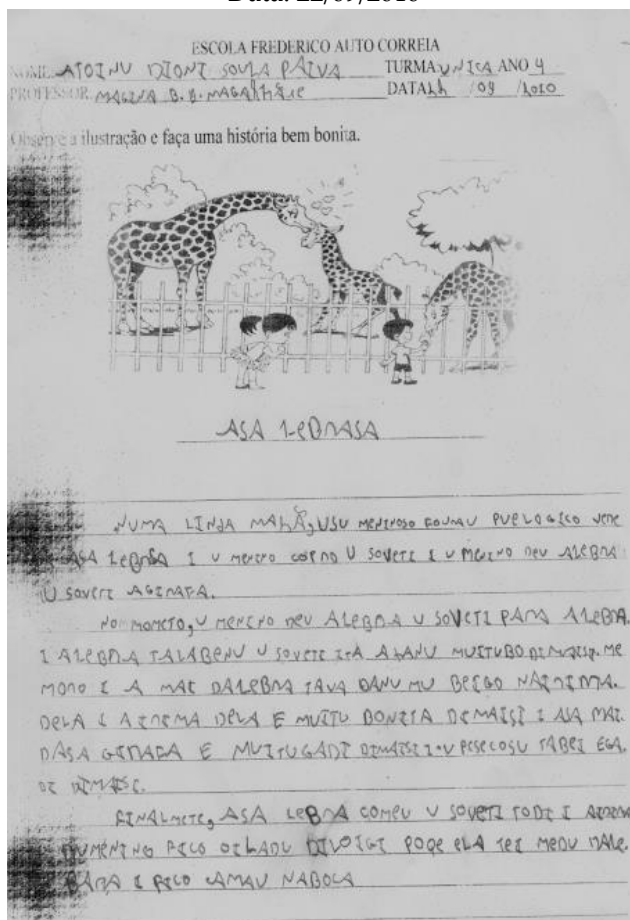 Data: 22/09/2010
ESCOLA FREDERICO AUTO CORREIA
NOME: ATOINU DIONI SOUZA PAIVA TURMA UNICA ANO 4
PROFESSOR MAGELA B. B. MAGALHÃES DATA 22 /09 /2010
Observe a ilustração e faça uma história bem bonita.
ASA LEBRASA
NUMA LINDA MAHÃ, USU MENINOSO FOUMAU PUELOGICO VENE
ASA LEBRASA I U MENINO COENO U SOVETI I U MENINO DEU ALEBRA
U SOVETI AGIRAFA.
NO MOMETO, U MENINO DEU ALEBRA U SOVETI PARA ALEBRA.
I ALEBRA TALABENU U SOVETI ALANU MUITUBO DIMAISI. ME
MONO I A MAE DALEBRA TAVA DANU MU BEIGO NAIRIMA.
DELA I AIREMA DELA E MUITU BONITA DEMAISI I ASA MAI.
DASA GIRAFA E MUITUGADI DIMAISI I U PESECOSU TABEI EGA.
DI DIMAISI.
FINALMETE, ASA LEBRA COMEU U SOVETI TODI I AIREMA
DUMENINO FICO DILADU DILOIGI POQE ELA TEI MEDU DALE.
BARA I FICO CAMAU NABOCA